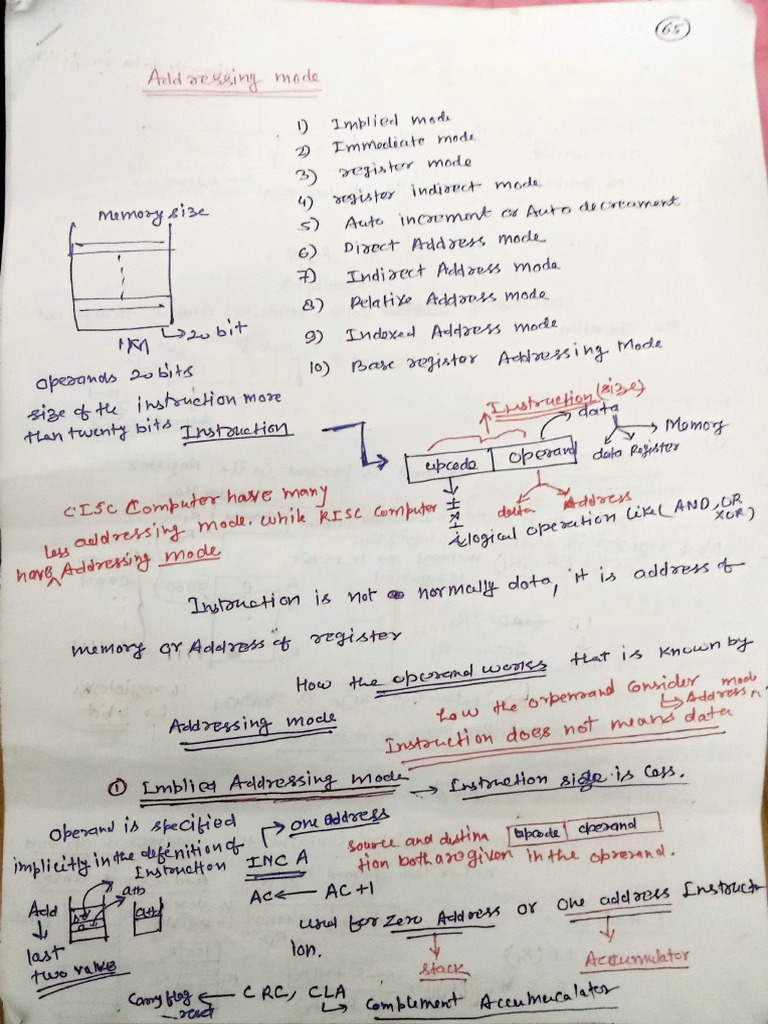 65
Addressing mode
1) Implied mode
2) Immediate mode
3) register mode
4) register indirect mode
5) Auto increment or Auto decreament
6) Direct Address mode
7) Indirect Address mode
8) Relative Address mode
9) Indexed Address mode
10) Base register Addressing Mode
Memory size
20 bit
1M
operands 20 bits
size of the instruction more
than twenty bits Instruction
Instruction (size)
data
Memory
data Register
opcode operand
data Address
logical operation like (AND, OR
XOR)
CISC Computer have many
addressing mode. while RISC Computer
have less Addressing mode
Instruction is not normally data, it is address of
memory or Address of register
How the operand works that is known by
Addressing mode
how the orpernand Consider mode
Address
Instruction does not means data
① Implied Addressing mode → Instruction side is Less.
Operand is specified
implicity in the definition of
Instruction
one address
INC A
AC ← AC + 1
opcode operand
source and destina
tion both are given in the oprerand.
Add
a+b
b
a
a+b
last
two value
used for Zero Address or one address Instruct
ion.
stack
Accumulator
Carry flag ← CRC, CLA
reset
Complement Accumulator